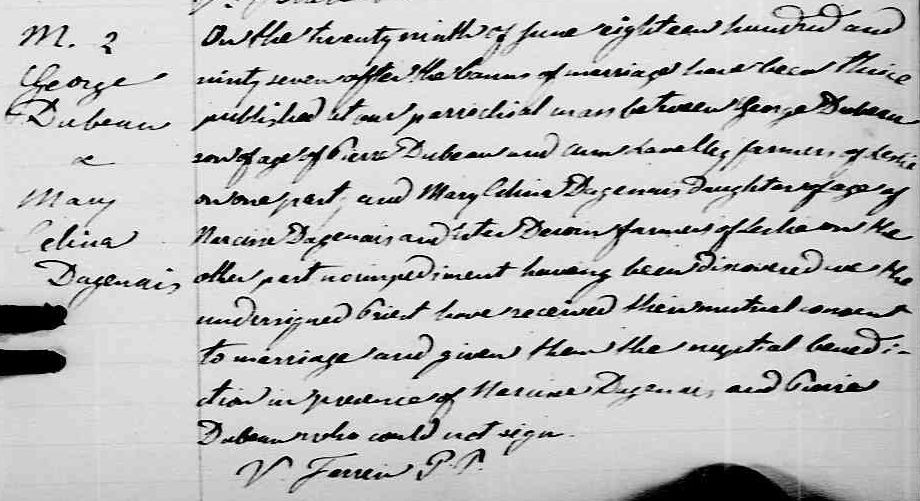 M. 2
George
Dubeau
&
Mary
Celina
Dagenais
On the twenty ninth of June eighteen hundred and
ninty seven after the banns of marriage have been thrice
published at our parrochial mass between George Dubeau
son of age of Pierre Dubeau and farmers of Leslie
on one part, and Mary Celina Dagenais Daughter of age of
Narcisse Dagenais and farmers of Leslie on the
other part no impediment having been discovered we the
undersigned Priest have received their mutual consent
to marriage and given them the nuptial benedi-
ction in presence of Narcisse Dagenais and Pierre
Dubeau who could not sign.
V. Ferreri P.P.